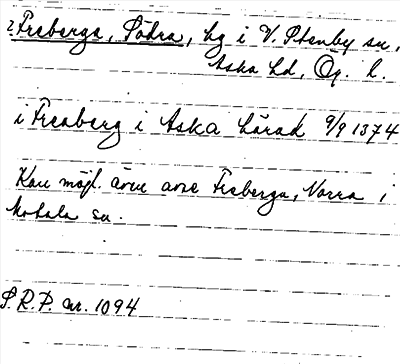 ? Freberga, Södra, by i V. Stenby sn,
Aska hd, Ög. l.
i Freaberg i Aska härad 9/9 1374
Kan möjl. även avse Freberga, Norra i
Motala sn.
S.R.P. nr. 1094